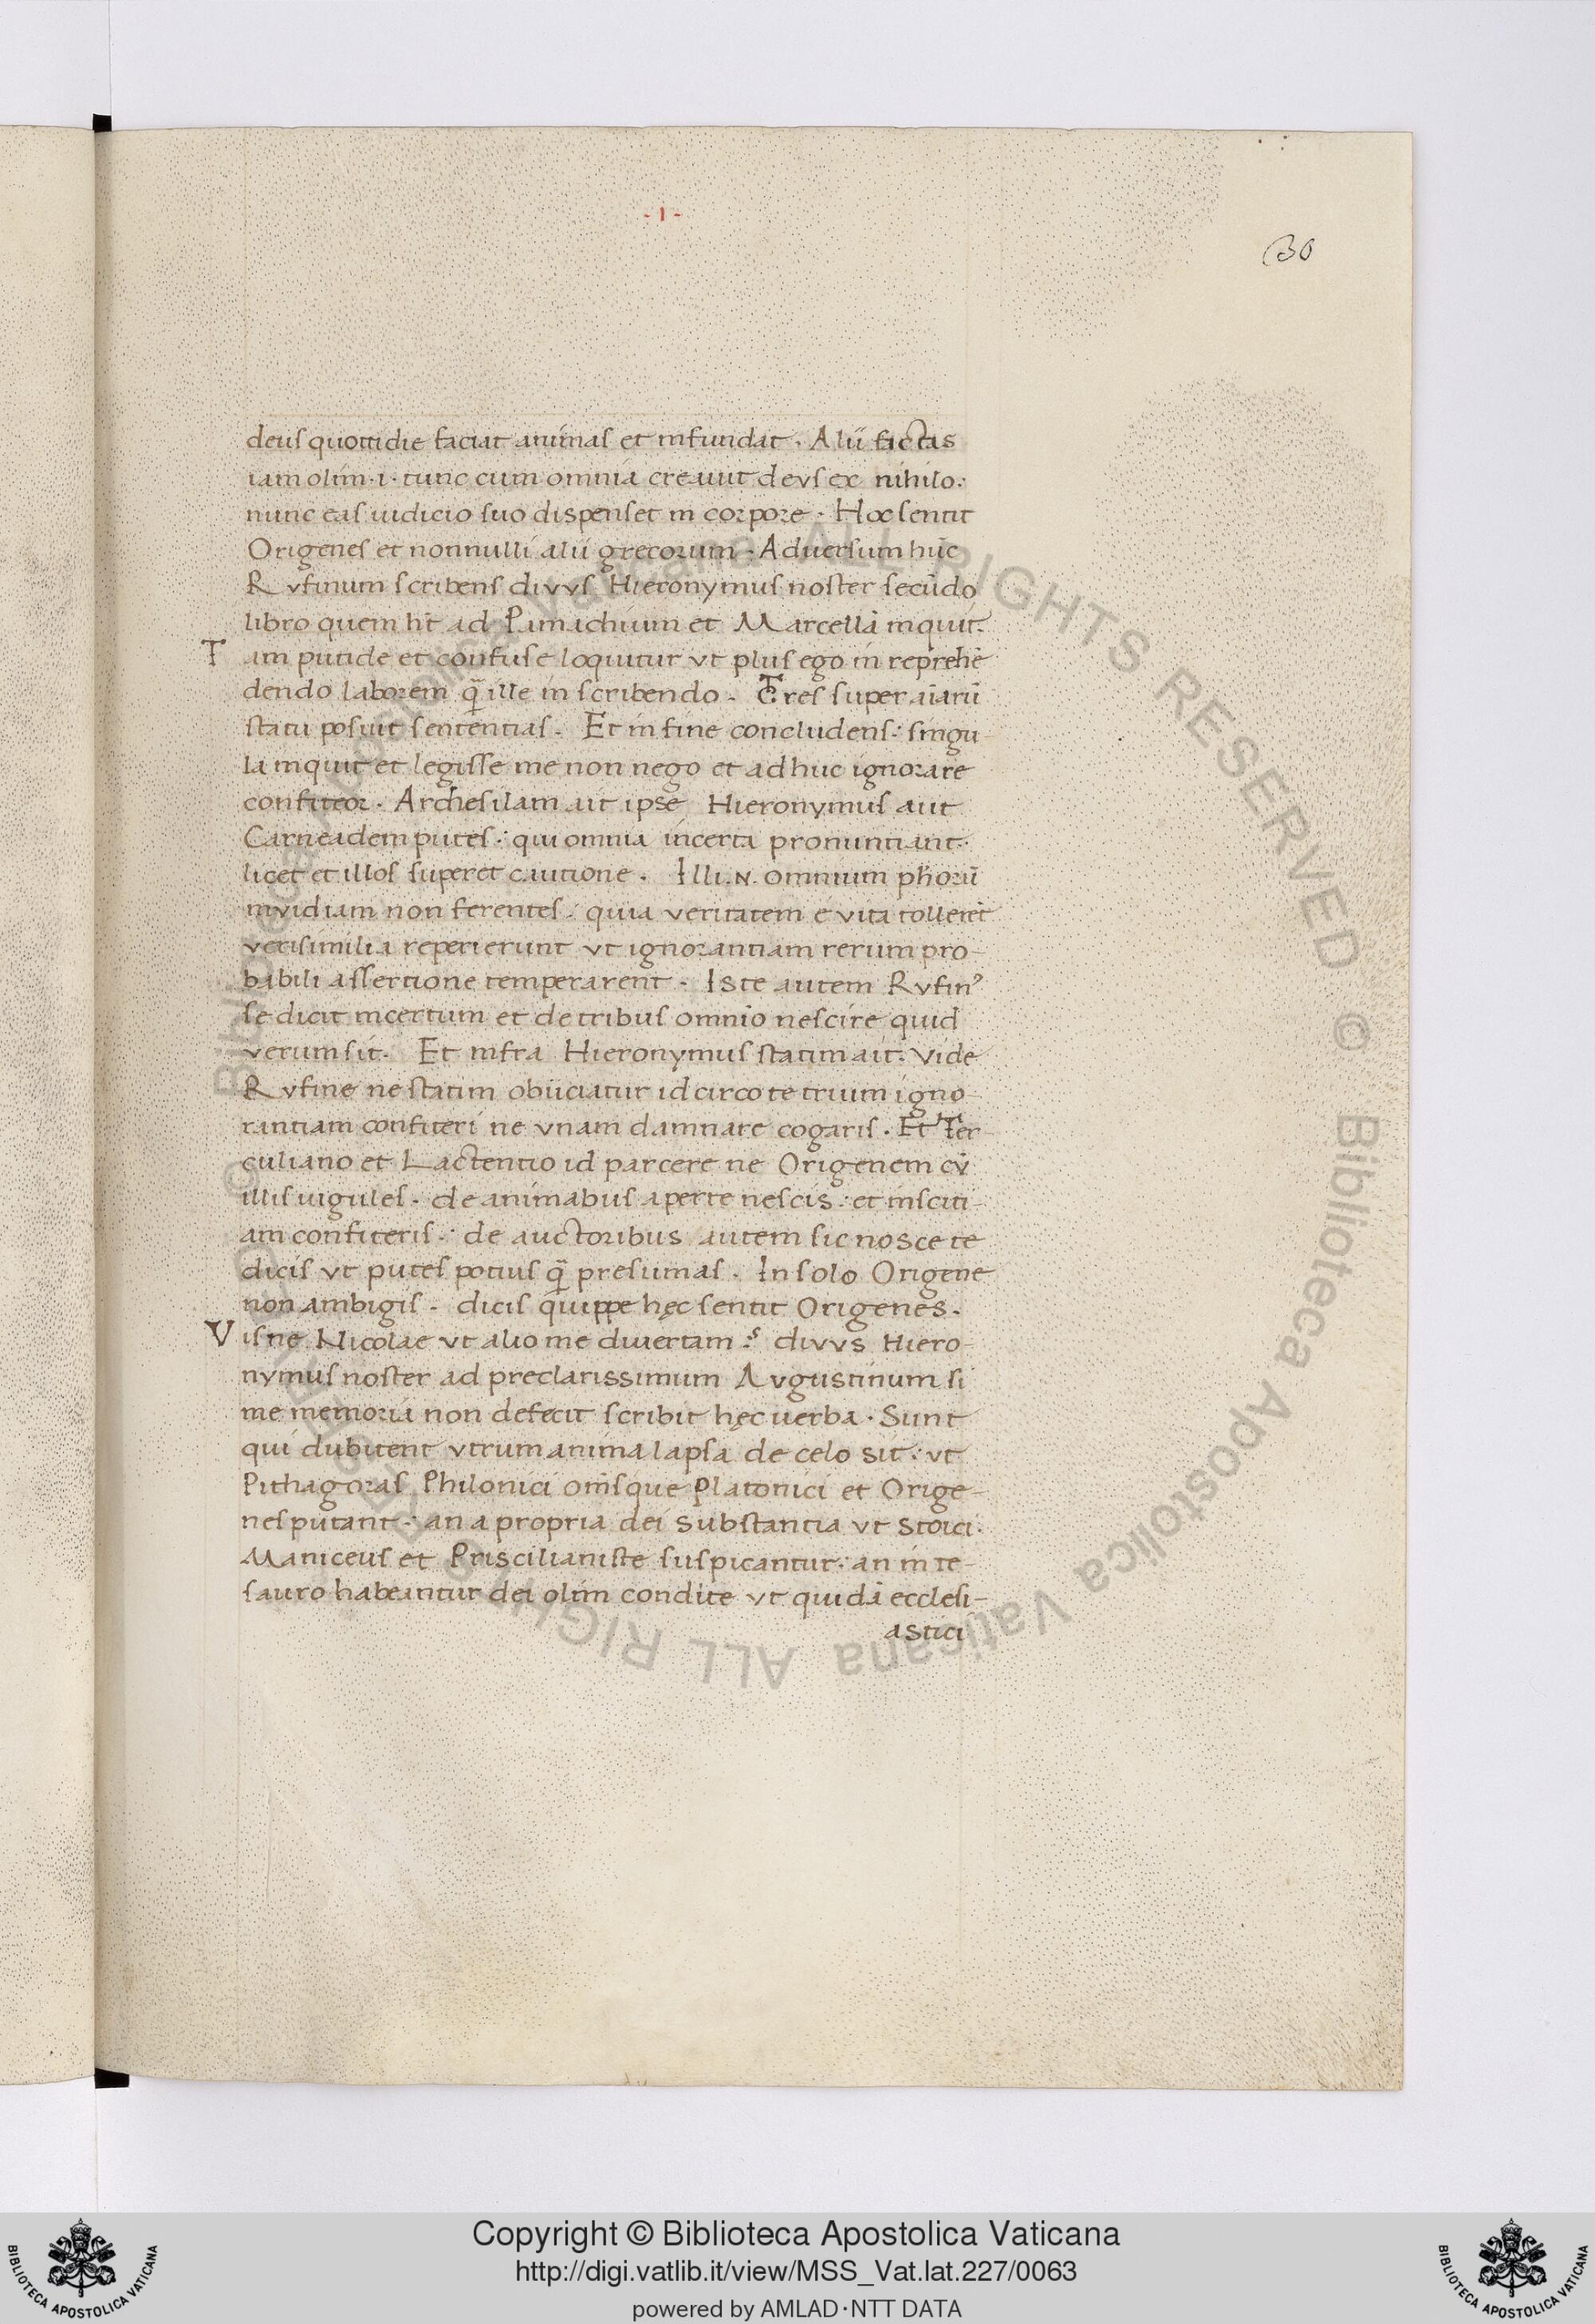 - I -
30
deus quottidie faciat animas et infundat. Alii factas
iam olim .i. tunc cum omnia creavit devs ex nihilo:
nunc eas iudicio suo dispenset in corpore. Hoc sentit
Origenes et nonnulli alii grecorum. Adversum hūc
Rvfinum scribens divvs Hieronymus noster secūdo
libro quem hīt ad Pamachium et Marcellā inquit.
Tam putide et confuse loquitur vt plus ego in reprehē
dendo laborem q̄ ille in scribendo. Tres super aīarū
statu posuit sententias. Et in fine concludens: singu-
la inquit et legisse me non nego et adhuc ignorare
confiteor. Archesilam ait ipse Hieronymus aut
Carneadem putes: qui omnia incerta pronuntiant.
licet et illos superet cautione. Illi .N. omnium phōrū
invidiam non ferentes: quia veritatem e vita tollerēt
verisimilia repererunt vt ignorantiam rerum pro-
babili assertione temperarent. Iste autem Rvfinꝰ
se dicit incertum et de tribus omnīo nescire quid
verum sit. Et infra Hieronymus statim ait: Vide
Rvfine ne statim obiiciatur idcirco te trium igno-
rantiam confiteri ne vnam damnare cogaris. Et Ter-
culiano et Lactentio id parcere ne Origenem cv̄
illis iugules. de animabus aperte nescis: et insciti-
am confiteris: de auctoribus autem sic nosce te
dicis vt putes potius q̄ presumas. In solo Origene
non ambigis. dicis quippe hęc sentit Origenes.
Visne Nicolae vt alio me divertam? divvs Hiero-
nymus noster ad preclarissimum Avgustinum si
me memoria non defecit scribit hęc uerba. Sunt
qui dubitent vtrum anima lapsa de celo sit: vt
Pithagoras Philonici om̄sque Platonici et Orige-
nes putant: an a propria dei substantia vt stoici.
Maniceus et Priscilianiste suspicantur: an in te-
sauro habeantur dei olim condite vt quidā ecclesi-
astici
Copyright © Biblioteca Apostolica Vaticana
http://digi.vatlib.it/view/MSS_Vat.lat.227/0063
powered by AMLAD·NTT DATA
BIBLIOTECA APOSTOLICA VATICANA
BIBLIOTECA APOSTOLICA VATICANA
© Biblioteca Apostolica Vaticana ALL RIGHTS RESERVED